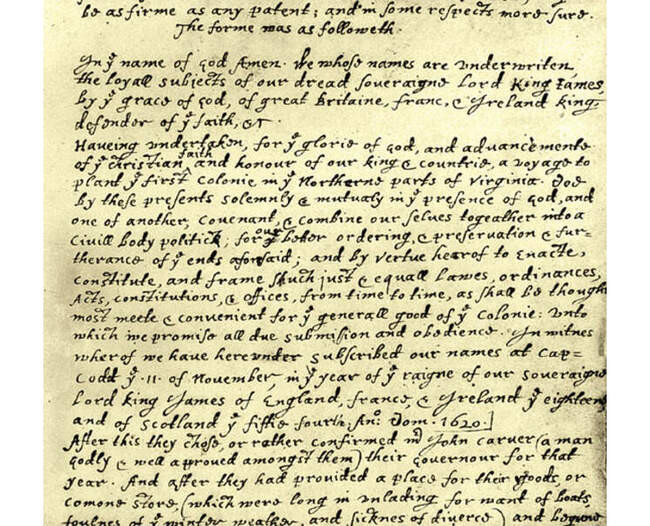 be as firme as any patent; and in some respects more sure.
The forme was as followeth.
In yͤ name of god Amen. We whose names are underwriten,
the loyall subjects of our dread soveraigne Lord King James,
by yͤ grace of god, of great Britaine, franc, & Ireland king,
defender of yͤ faith, &c.
Haveing undertaken, for yͤ glorie of god, and advancemente
of yͤ christian faith and honour of our king & countrie, a voyage to
plant yͤ first colonie in yͤ Northerne parts of Virginia. Doe
by these presents solemnly & mutualy in yͤ presence of god, and
one of another, covenant, & combine our selves togeather into a
Civill body politick; for our better ordering, & preservation & fur=
therance of yͤ ends aforsaid; and by vertue hearof to Enacte,
constitute, and frame shuch just & equall Lawes, ordinances,
Acts, constitutions, & offices, from time to time, as shall be thought
most meete & convenient for yͤ generall good of yͤ Colonie: unto
which we promise all due submission and obedience. In witnes
wherof we have hereunder subscribed our names at Cap=
Codd yͤ .11. of November, in yͤ year of yͤ raigne of our soveraigne
Lord king James of England, france, & Ireland yͤ eighteen
and of Scotland yͤ fiftie fourth. Anͦ: Dom. 1620.]
After this they chose, or rather confirmed mͬ John carver (a man
godly & well approved amongst them) their governour for that
year. And after they had provided a place for their goods, or
comone store, (which were long in unlading for want of boats
foulnes of yͤ winter weather, and sicknes of diverce) and begune